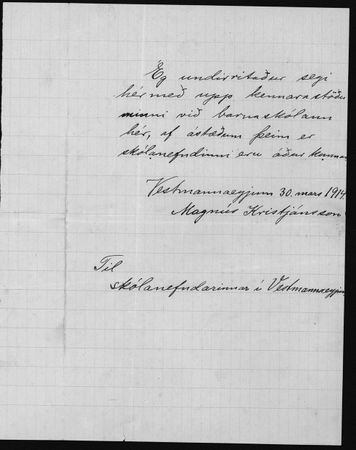 Eg undirritaður segi
hér með upp kennarastöðu
minni við barnaskólann
hér, af ástæðum þeim er
skólanefndinni eru áður kunnar
Vestmannaeyjum 30. mars 1914.
Magnús Kristjánsson
Til
skólanefndarinnar í Vestmannaeyjum